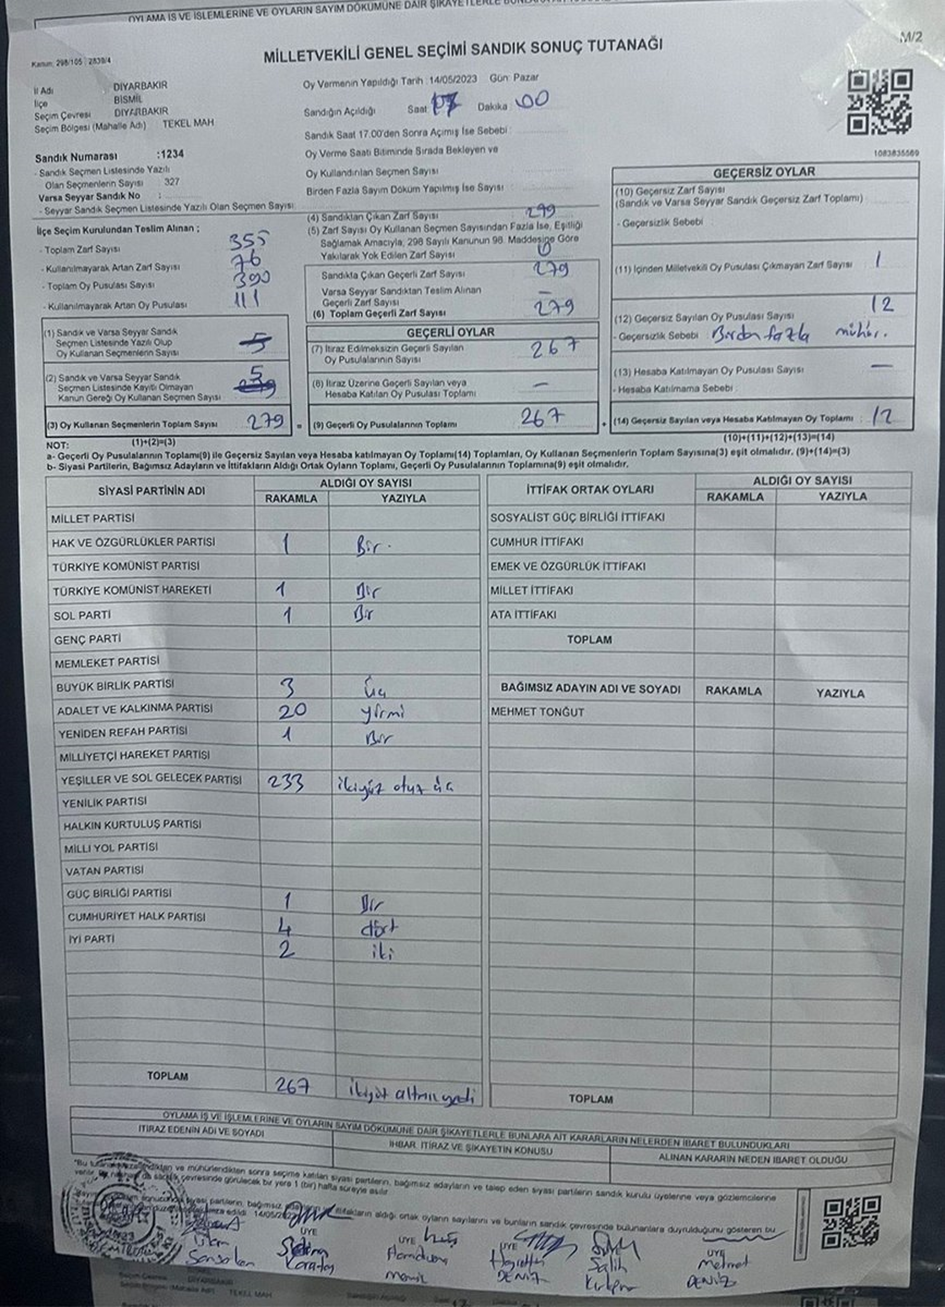 OYLAMA İŞ VE İŞLEMLERİNE VE OYLARIN SAYIM DÖKÜMÜNE DAİR ŞİKAYETLERLE
Kanun: 298/105 : 2839/4
MİLLETVEKİLİ GENEL SEÇİMİ SANDIK SONUÇ TUTANAĞI
M/2
İl Adı DİYARBAKIR
İlçe BİSMİL
Seçim Çevresi DİYARBAKIR
Seçim Bölgesi (Mahalle Adı) TEKEL MAH
Oy Vermenin Yapıldığı Tarih :14/05/2023 Gün: Pazar
Sandığın Açıldığı Saat Dakika 00
Sandık Saat 17.00'den Sonra Açımış İse Sebebi :
Oy Verme Saati Bitiminde Sırada Bekleyen ve
Oy Kullandırılan Seçmen Sayısı
Birden Fazla Sayım Döküm Yapılmış İse Sayısı
1083835589
Sandık Numarası :1234
- Sandık Seçmen Listesinde Yazılı
Olan Seçmenlerin Sayısı : 327
Varsa Seyyar Sandık No :
- Seyyar Sandık Seçmen Listesinde Yazılı Olan Seçmen Sayısı
İlçe Seçim Kurulundan Teslim Alınan ;
- Toplam Zarf Sayısı 355
- Kullanılmayarak Artan Zarf Sayısı 76
- Toplam Oy Pusulası Sayısı 390
- Kullanılmayarak Artan Oy Pusulası 111
(1) Sandık ve Varsa Seyyar Sandık
Seçmen Listesinde Yazılı Olup
Oy Kullanan Seçmenlerin Sayısı
(2) Sandık ve Varsa Seyyar Sandık 5
Seçmen Listesinde Kayıtlı Olmayan
Kanun Gereği Oy Kullanan Seçmen Sayısı
(3) Oy Kullanan Seçmenlerin Toplam Sayısı 279
(4) Sandıktan Çıkan Zarf Sayısı 299
(5) Zarf Sayısı Oy Kullanan Seçmen Sayısından Fazla İse, Eşitliği
Sağlamak Amacıyla, 298 Sayılı Kanunun 98. Maddesine Göre
Yakılarak Yok Edilen Zarf Sayısı
Sandıkta Çıkan Geçerli Zarf Sayısı 279
Varsa Seyyar Sandıktan Teslim Alınan
Geçerli Zarf Sayısı –
(6) Toplam Geçerli Zarf Sayısı 279
GEÇERLİ OYLAR
(7) İtiraz Edilmeksizin Geçerli Sayılan
Oy Pusulalarının Sayısı 267
(8) İtiraz Üzerine Geçerli Sayılan veya
Hesaba Katılan Oy Pusulası Toplamı –
= (9) Geçerli Oy Pusulalarının Toplamı 267
GEÇERSİZ OYLAR
(10) Geçersiz Zarf Sayısı
(Sandık ve Varsa Seyyar Sandık Geçersiz Zarf Toplamı)
- Geçersizlik Sebebi
(11) İçinden Milletvekili Oy Pusulası Çıkmayan Zarf Sayısı 1
(12) Geçersiz Sayılan Oy Pusulası Sayısı 12
- Geçersizlik Sebebi Birden fazla mühür.
(13) Hesaba Katılmayan Oy Pusulası Sayısı –
- Hesaba Katılmama Sebebi :
+ (14) Geçersiz Sayılan veya Hesaba Katılmayan Oy Toplamı : 12
NOT: (1)+(2)=(3) (10)+(11)+(12)+(13)=(14)
a- Geçerli Oy Pusulalarının Toplamı(9) ile Geçersiz Sayılan veya Hesaba katılmayan Oy Toplamı(14) Toplamları, Oy Kullanan Seçmenlerin Toplam Sayısına(3) eşit olmalıdır. (9)+(14)=(3)
b- Siyasi Partilerin, Bağımsız Adayların ve İttifakların Aldığı Ortak Oyların Toplamı, Geçerli Oy Pusulalarının Toplamına(9) eşit olmalıdır.
SİYASİ PARTİNİN ADI ALDIĞI OY SAYISI
RAKAMLA YAZIYLA
MİLLET PARTİSİ
HAK VE ÖZGÜRLÜKLER PARTİSİ 1 Bir.
TÜRKİYE KOMÜNİST PARTİSİ
TÜRKİYE KOMÜNİST HAREKETİ 1 Bir
SOL PARTİ 1 Bir
GENÇ PARTİ
MEMLEKET PARTİSİ
BÜYÜK BİRLİK PARTİSİ 3 Üç
ADALET VE KALKINMA PARTİSİ 20 yirmi
YENİDEN REFAH PARTİSİ 1 Bir
MİLLİYETÇİ HAREKET PARTİSİ
YEŞİLLER VE SOL GELECEK PARTİSİ 233 ikiyüz otuz üç
YENİLİK PARTİSİ
HALKIN KURTULUŞ PARTİSİ
MİLLİ YOL PARTİSİ
VATAN PARTİSİ
GÜÇ BİRLİĞİ PARTİSİ 1 Bir
CUMHURİYET HALK PARTİSİ 4 dört
İYİ PARTİ 2 iki
TOPLAM 267 ikiyüz altmış yedi
İTTİFAK ORTAK OYLARI ALDIĞI OY SAYISI
RAKAMLA YAZIYLA
SOSYALİST GÜÇ BİRLİĞİ İTTİFAKI
CUMHUR İTTİFAKI
EMEK VE ÖZGÜRLÜK İTTİFAKI
MİLLET İTTİFAKI
ATA İTTİFAKI
TOPLAM
BAĞIMSIZ ADAYIN ADI VE SOYADI RAKAMLA YAZIYLA
MEHMET TONĞUT
TOPLAM
OYLAMA İŞ VE İŞLEMLERİNE VE OYLARIN SAYIM DÖKÜMÜNE DAİR ŞİKAYETLERLE BUNLARA AİT KARARLARIN NELERDEN İBARET BULUNDUKLARI
İTİRAZ EDENİN ADI VE SOYADI İHBAR, İTİRAZ VE ŞİKAYETİN KONUSU ALINAN KARARIN NEDEN İBARET OLDUĞU
ve mühürlendikten sonra seçime katılan siyasi partilerin, bağımsız adayların ve talep eden siyasi partilerin sandık kurulu üyelerine veya gözlemcilerine
çevresinde görülecek bir yere 1 (bir) hafta süreyle asılır.
siyasi partilerin, bağımsız aldığı ortak oyların sayılarını ve bunların sandık çevresinde bulunanlara duyrulduğunu gösteren bu
14/05/
ÜYE ÜYE ÜYE ÜYE
Hayrettin Salih Mehmet
DENİZ DENİZ
DİYARBAKIR
TEKEL MAH